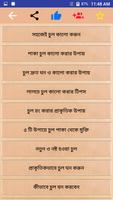 11:48 AM
সহজেই চুল কালো করুন
পাকা চুল কালো করার উপায়
চুল দ্রুত ঘন ও কালো করার উপায়
চুল কালো করার টিপস
চুল রং করার প্রাকৃতিক উপায়
৫ টি উপায়ে চুল পাকা থেকে মুক্তি
নতুন ও নষ্ট হওয়া চুল
প্রাকৃতিকভাবে চুল ঘন করুন
কীভাবে চুল ঘন করবেন